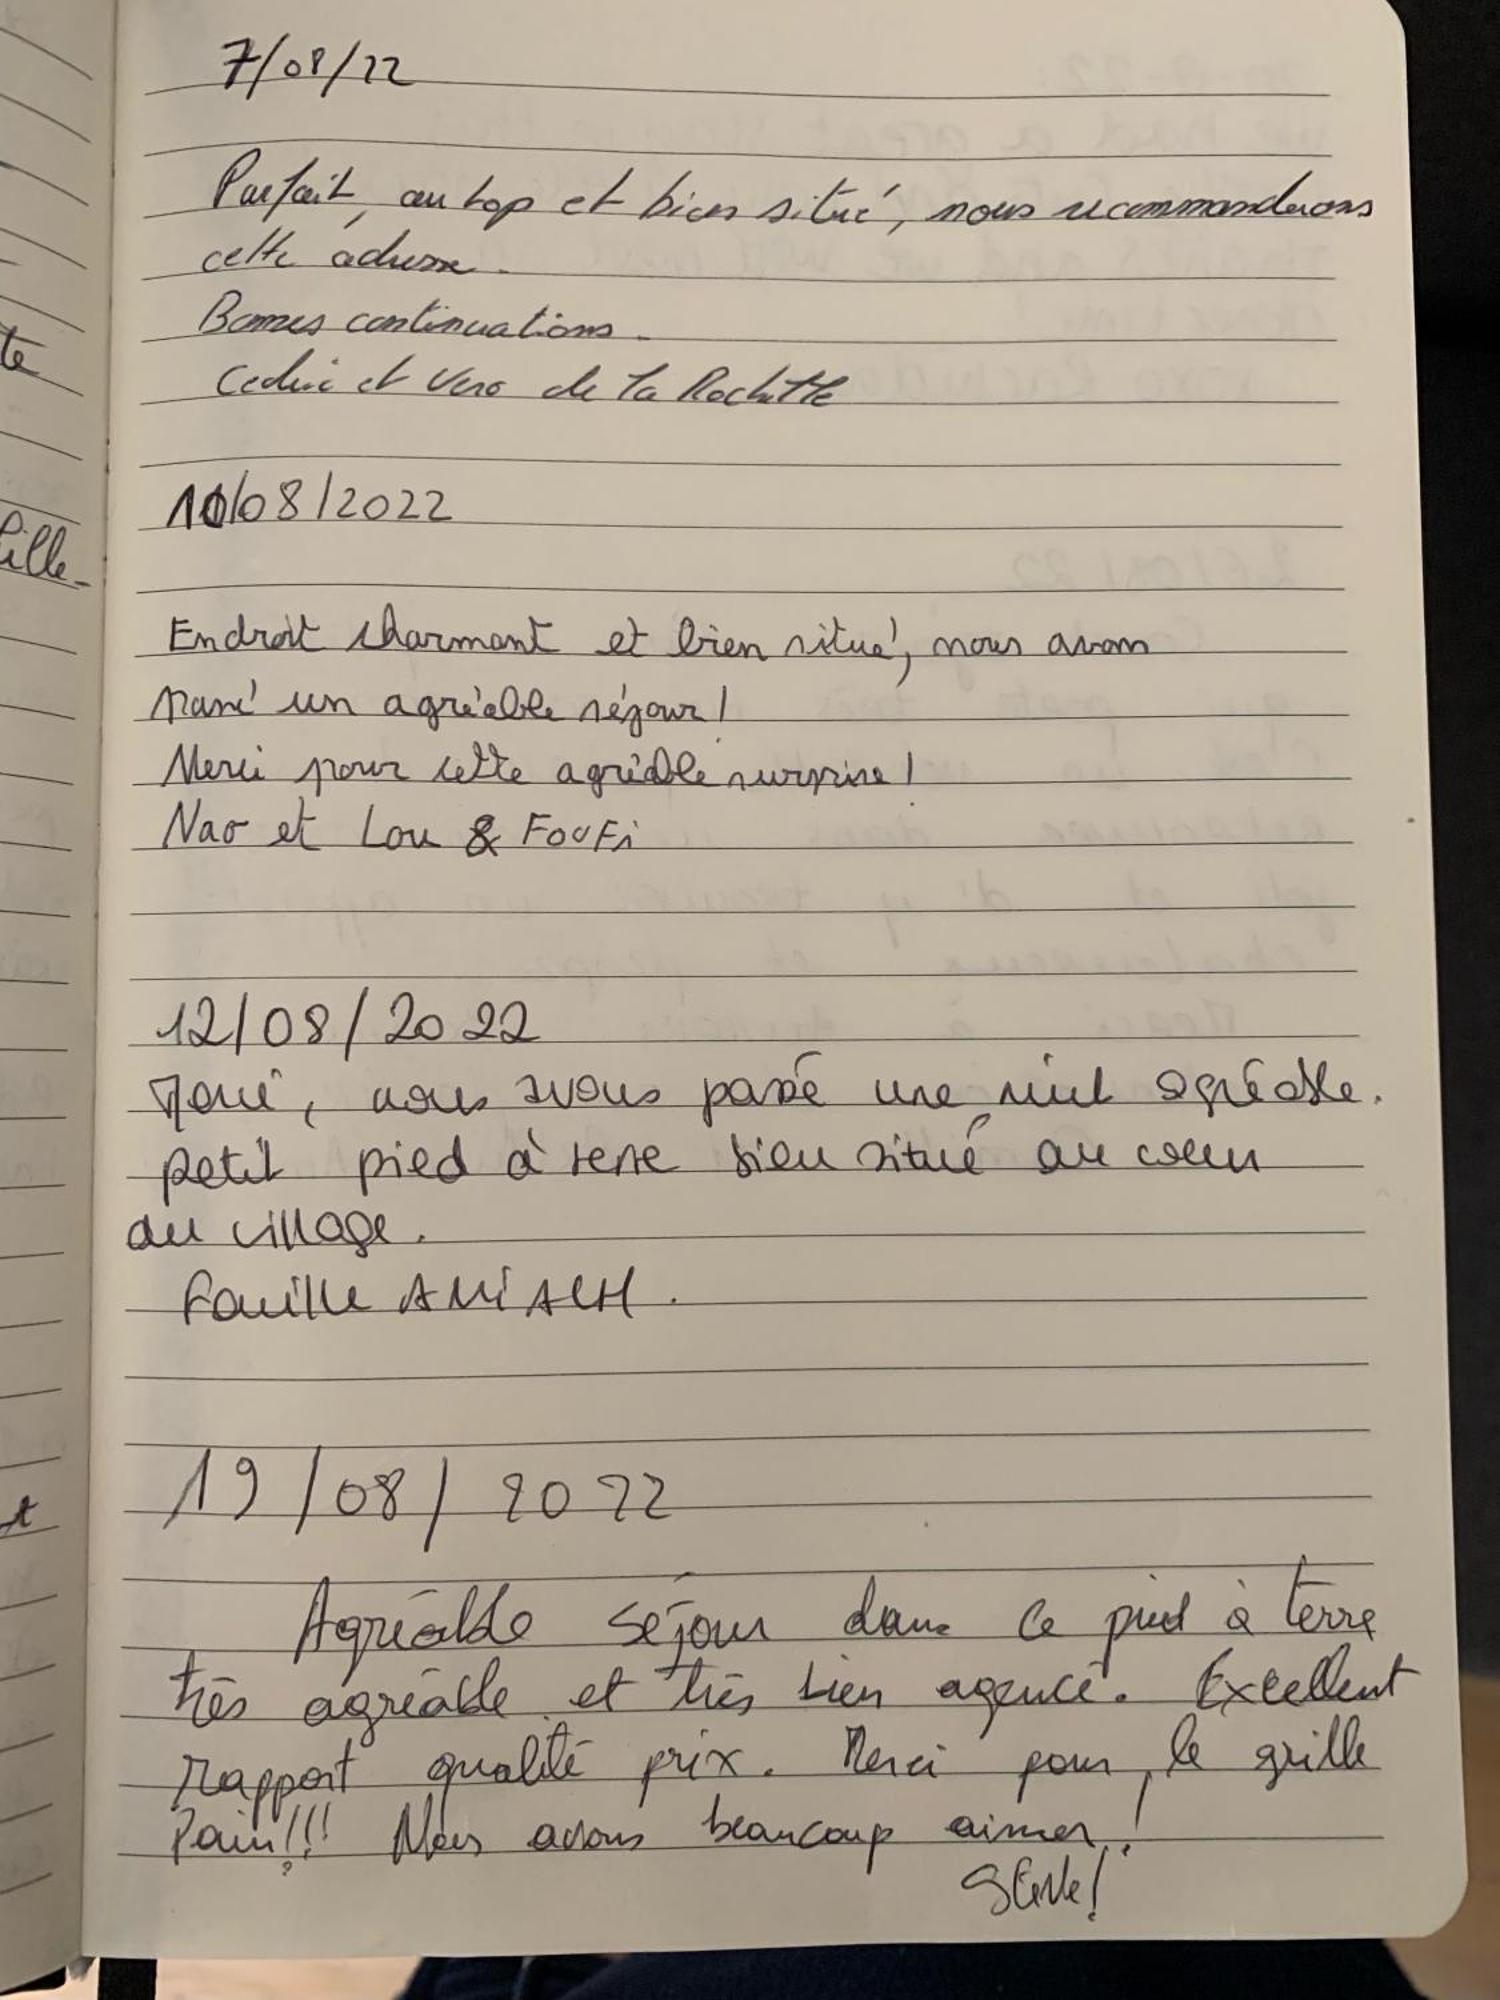 7/08/22
Parfait, au top et bien situé, nous recommanderons
cette adresse.
Bonnes continuations.
Cedric et Vero de la Rochette
10/08/2022
Endroit charmant et bien situé, nous avons
passé un agréable séjour!
Merci pour cette agréable surprise!
Nao et Lou & FouFi
12/08/2022
nous avons passé une nuit agréable.
petit pied à terre bien situé au coeur
du village.
famille
19/08/2022
Agréable séjour dans ce pied à terre
très agréable et très bien agencé. Excellent
rapport qualité prix. Merci pour le grille
Pain!!! Nous avons beaucoup aimer!
te
fille